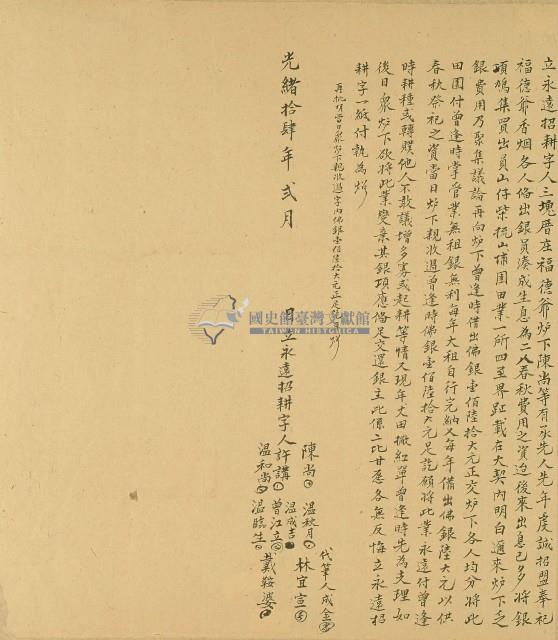 立永遠招耕字人三塊厝庄福德爺炉下陳尚等有承先人先年虔誠招盟奉祀
福德爺香烟各人俻出銀員湊成生息為二八春秋費用之資迨後來出息已多將銀
項鳩集買出員山仔柴梳山埔園田業一所四至界趾載在大契內明白邇來炉下乏
銀費用乃聚集議論再向炉下曾逢時借出佛銀壹佰陸拾大元正交炉下各人均分將此
田園付曾逢時掌管業無租銀無利每年大租自行完納又每年備出佛銀陸大元以供
春秋祭祀之資當日炉下親收過曾逢時佛銀壹佰陸拾大元足訖願將此業永遠付曾逢
時耕種或轉賤他人不敢議增多寡或起耕等情又現年丈田撤紅單曾逢時先為支理如
後日衆炉下欲將此業變棄其銀項應俻足交還銀主此係二比甘愿各無反悔立永遠招
耕字一紙付執為炤
再批明當日衆炉下親收過字內佛銀壹佰陸拾大元正足訖炤
光緒拾肆年弍月 日立永遠招耕字人許講
陳尚
温和尚
温秋月
温成吉
曾江立
温臨生
代筆人成全
林宜宣
戴鞍婆
國史館臺灣文獻館
TAIWAN HISTORICA